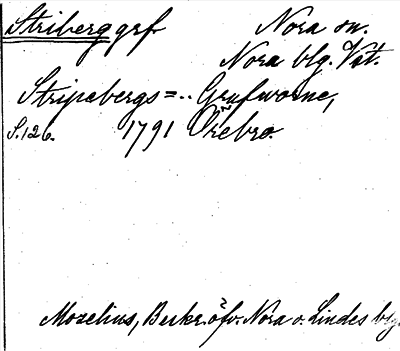 Striberg grf Nora sn.
Nora blg. Vst.
Stripebergs=.. Grufworne,
S. 126. 1791 Örebro
Mozelius, Beskr. öfv. Nora o. Lindes blg.